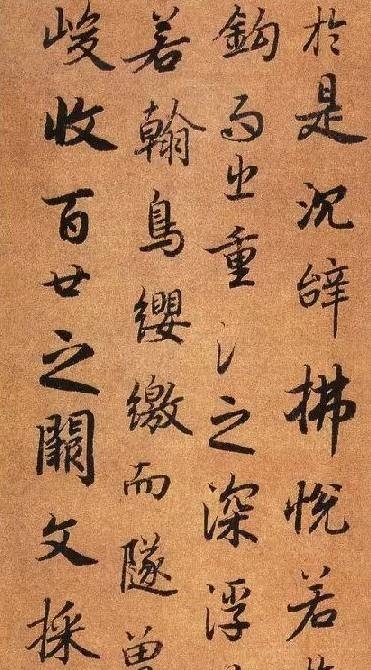 於是沉辭拂悅若
鈎而出重之深浮
若翰鳥纓繳而隧曾
峻收百世之闕文採